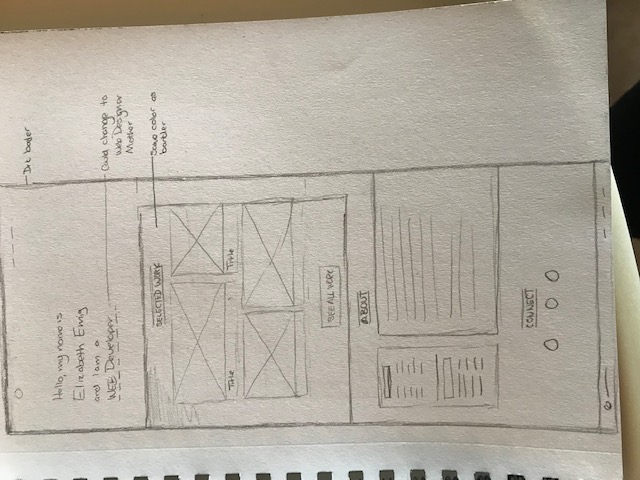 Hello, my name is
Elizabeth Emig
and I am a
WEB Developer
Could change to
Web Designer
Mother
SELECTED WORK
Same color as
border
Title
Title
SEE ALL WORK
ABOUT
CONNECT